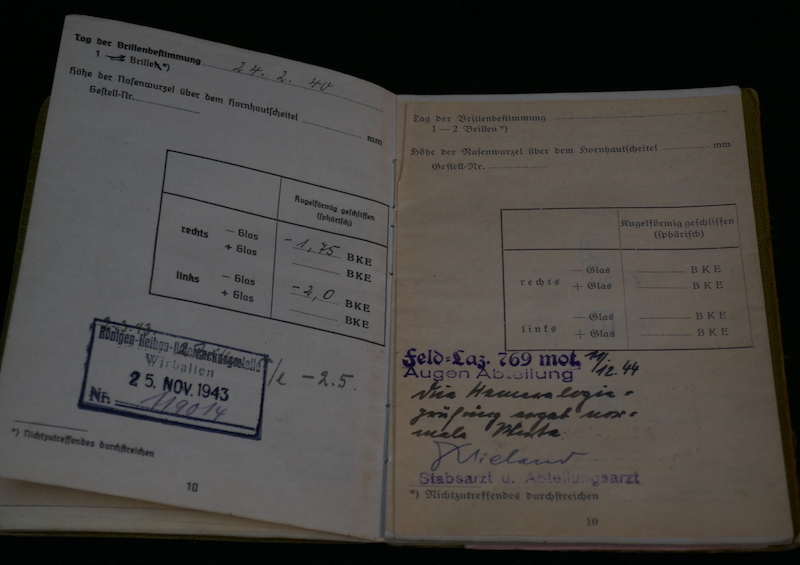 Tag der Brillenbestimmung 24. 2. 40
1 — 2 Brillen *)
Höhe der Nasenwurzel über dem Hornhautscheitel mm
Gestell-Nr.
Kugelförmig geschliffen
(sphärisch)
rechts — Glas -1,75 BKE
+ Glas BKE
links — Glas -2,0 BKE
+ Glas BKE
-2.5.
Wirballen
25. NOV. 1943
Nr. 119014
*) Nichtzutreffendes durchstreichen
10
Tag der Brillenbestimmung
1 — 2 Brillen *)
Höhe der Nasenwurzel über dem Hornhautscheitel mm
Gestell-Nr.
Kugelförmig geschliffen
(sphärisch)
rechts — Glas BKE
+ Glas BKE
links — Glas BKE
+ Glas BKE
Feld-Laz. 769 mot. 12.44
Augen Abteilung
Die
prüfung ergab nor-
male Werte
Wieland
Stabsarzt u. Abteilungsarzt
*) Nichtzutreffendes durchstreichen
10